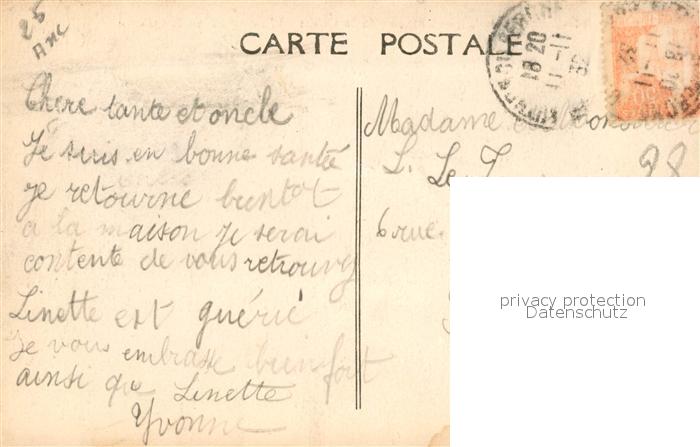 25
Anc
CARTE POSTALE
18 20
11-11
32
Chere tante et oncle
Je suis en bonne santée
je retourne bientot
a la maison je serai
contente de vous retrouvez
Linette est guérie
Je vous embrasse bien fort
ainsi que Linette
Yvonne
Madame
L. Le
6 rue
98
privacy protection
Datenschutz